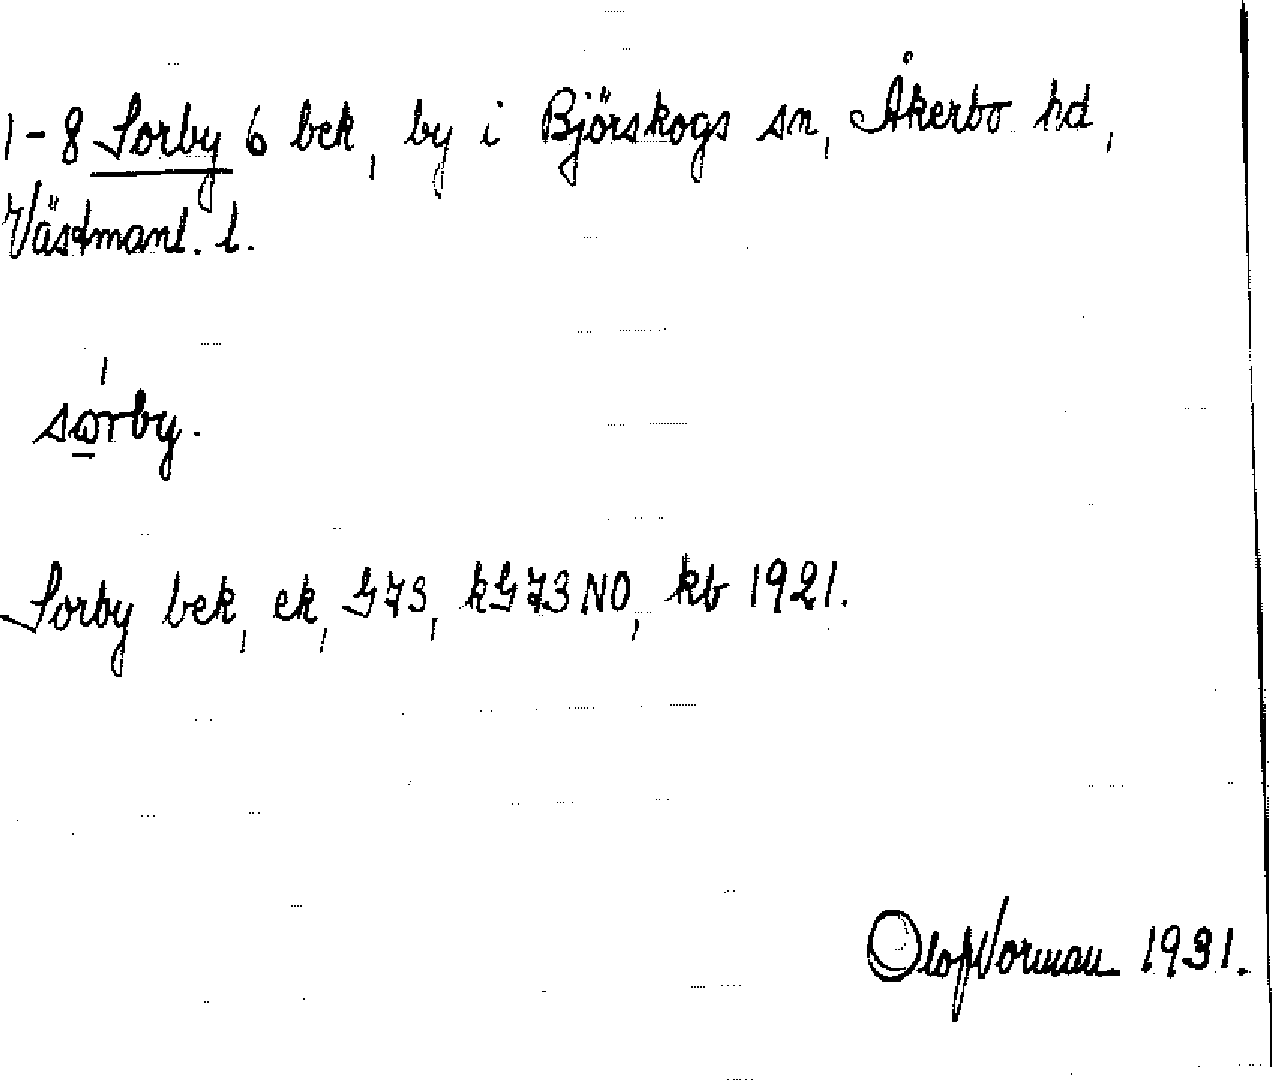 1-8 Sorby 6 bek, by i Björskogs sn, Åkerbo hd,
Västmanl. l.
so̲rby.
Sorby bek, ek, G73, kG73NO, kb 1921.
Olof Norman 1931.